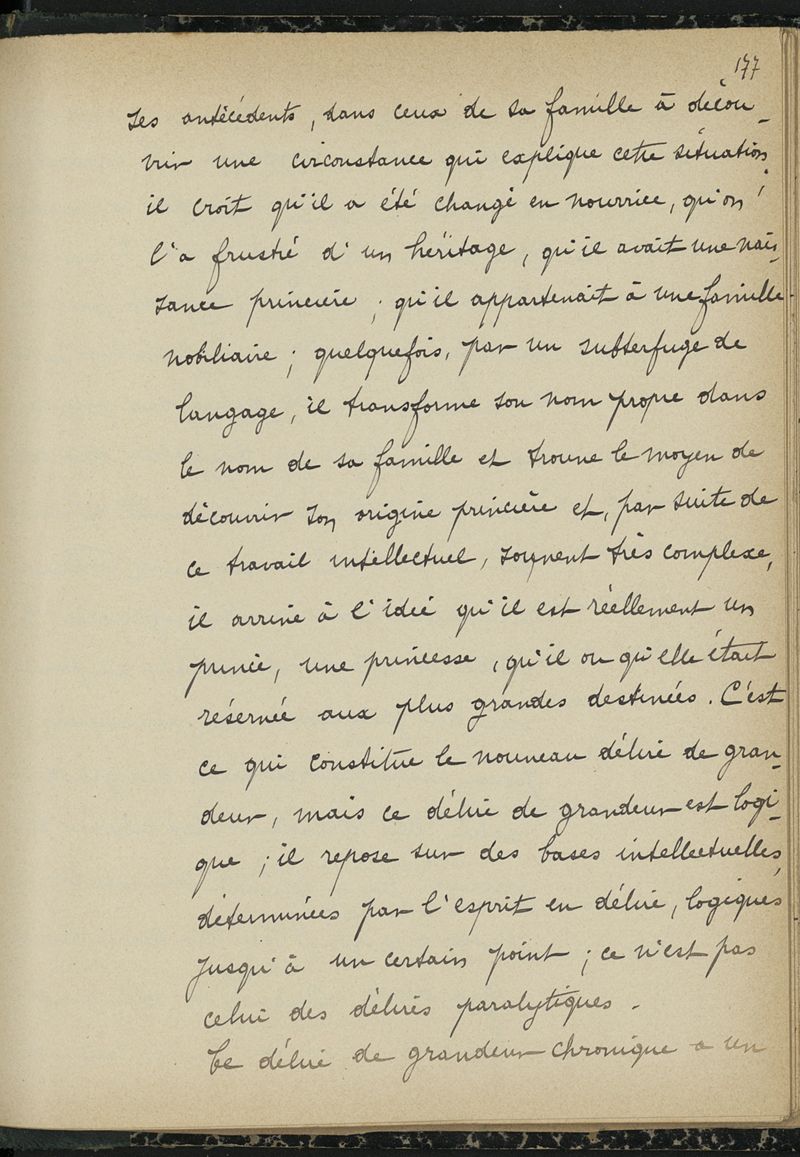 177
ses antécédents, dans ceux de sa famille à décou-
vrir une circonstance qui explique cette situation;
il croit qu'il a été changé en nourrice, qu'on
l'a frustré d'un héritage, qu'il avait une nais-
sance princière; qu'il appartenait à une famille
nobiliaire; quelquefois, par un subterfuge de
langage, il transforme son nom propre dans
le nom de sa famille et trouve le moyen de
découvrir son origine princière et, par suite de
ce travail intellectuel, souvent très complexe,
il arrive à l'idée qu'il est réellement un
prince, une princesse, qu'il ou qu'elle était
réservée aux plus grandes destinées. C'est
ce qui constitue le nouveau délire de gran-
deur, mais ce délire de grandeur est logi-
que; il repose sur des bases intellectuelles,
déterminées par l'esprit en délire, logiques
jusqu'à un certain point; ce n'est pas
celui des délires paralytiques.
Ce délire de grandeur chronique a un